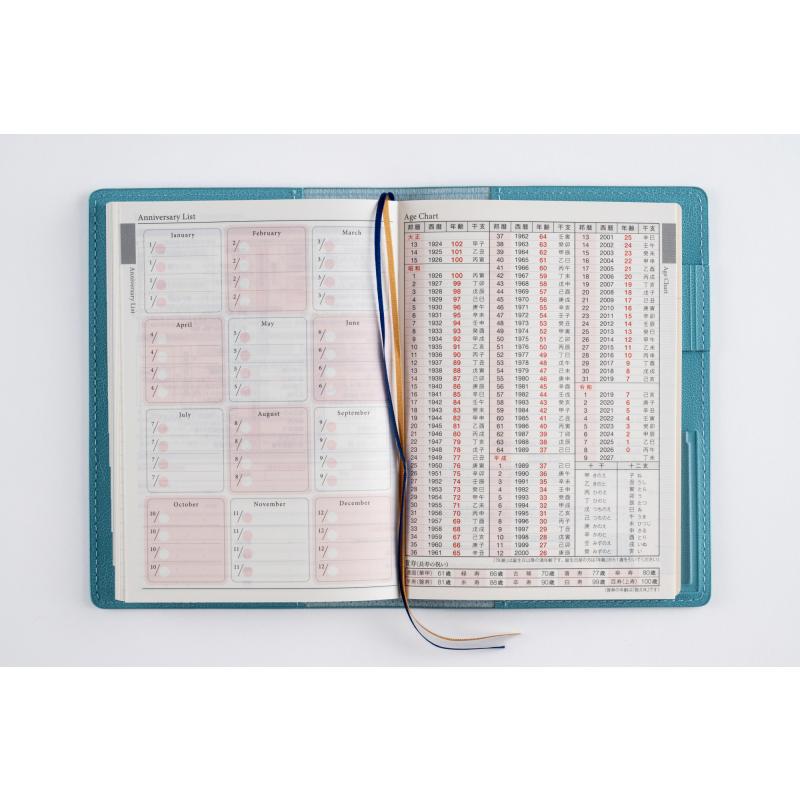 Anniversary List
January
February
March
1/
1/
1/
1/
2/
2/
2/
2/
3/
3/
3/
3/
April
May
June
4/
4/
4/
4/
5/
5/
5/
5/
6/
6/
6/
6/
July
August
September
7/
7/
7/
7/
8/
8/
8/
8/
9/
9/
9/
9/
October
November
December
10/
10/
10/
10/
11/
11/
11/
11/
12/
12/
12/
12/
Anniversary List
Age Chart
邦暦 西暦 年齢 干支
大正
13 1924 102 甲子
14 1925 101 乙丑
15 1926 100 丙寅
昭和
1 1926 100 丙寅
2 1927 99 丁卯
3 1928 98 戊辰
4 1929 97 己巳
5 1930 96 庚午
6 1931 95 辛未
7 1932 94 壬申
8 1933 93 癸酉
9 1934 92 甲戌
10 1935 91 乙亥
11 1936 90 丙子
12 1937 89 丁丑
13 1938 88 戊寅
14 1939 87 己卯
15 1940 86 庚辰
16 1941 85 辛巳
17 1942 84 壬午
18 1943 83 癸未
19 1944 82 甲申
20 1945 81 乙酉
21 1946 80 丙戌
22 1947 79 丁亥
23 1948 78 戊子
24 1949 77 己丑
25 1950 76 庚寅
26 1951 75 辛卯
27 1952 74 壬辰
28 1953 73 癸巳
29 1954 72 甲午
30 1955 71 乙未
31 1956 70 丙申
32 1957 69 丁酉
33 1958 68 戊戌
34 1959 67 己亥
35 1960 66 庚子
36 1961 65 辛丑
邦暦 西暦 年齢 干支
37 1962 64 壬寅
38 1963 63 癸卯
39 1964 62 甲辰
40 1965 61 乙巳
41 1966 60 丙午
42 1967 59 丁未
43 1968 58 戊申
44 1969 57 己酉
45 1970 56 庚戌
46 1971 55 辛亥
47 1972 54 壬子
48 1973 53 癸丑
49 1974 52 甲寅
50 1975 51 乙卯
51 1976 50 丙辰
52 1977 49 丁巳
53 1978 48 戊午
54 1979 47 己未
55 1980 46 庚申
56 1981 45 辛酉
57 1982 44 壬戌
58 1983 43 癸亥
59 1984 42 甲子
60 1985 41 乙丑
61 1986 40 丙寅
62 1987 39 丁卯
63 1988 38 戊辰
64 1989 37 己巳
平成
1 1989 37 己巳
2 1990 36 庚午
3 1991 35 辛未
4 1992 34 壬申
5 1993 33 癸酉
6 1994 32 甲戌
7 1995 31 乙亥
8 1996 30 丙子
9 1997 29 丁丑
10 1998 28 戊寅
11 1999 27 己卯
12 2000 26 庚辰
邦暦 西暦 年齢 干支
13 2001 25 辛巳
14 2002 24 壬午
15 2003 23 癸未
16 2004 22 甲申
17 2005 21 乙酉
18 2006 20 丙戌
19 2007 19 丁亥
20 2008 18 戊子
21 2009 17 己丑
22 2010 16 庚寅
23 2011 15 辛卯
24 2012 14 壬辰
25 2013 13 癸巳
26 2014 12 甲午
27 2015 11 乙未
28 2016 10 丙申
29 2017 9 丁酉
30 2018 8 戊戌
31 2019 7 己亥
令和
1 2019 7 己亥
2 2020 6 庚子
3 2021 5 辛丑
4 2022 4 壬寅
5 2023 3 癸卯
6 2024 2 甲辰
7 2025 1 乙巳
8 2026 0 丙午
9 2027 丁未
十干 十二支
甲 きのえ
乙 きのと
丙 ひのえ
丁 ひのと
戊 つちのえ
己 つちのと
庚 かのえ
辛 かのと
壬 みずのえ
癸 みずのと
子 ね
丑 うし
寅 とら
卯 う
辰 たつ
巳 み
午 うま
未 ひつじ
申 さる
酉 とり
戌 いぬ
亥 い
賀寿(長寿の祝い)
還暦(華甲) 61歳 緑寿 66歳 古稀 70歳 喜寿 77歳 傘寿 80歳
半寿(盤寿) 81歳 米寿 88歳 卒寿 90歳 白寿 99歳 百寿(上寿) 100歳
(賀寿の年齢は「数え年」です)
Age Chart